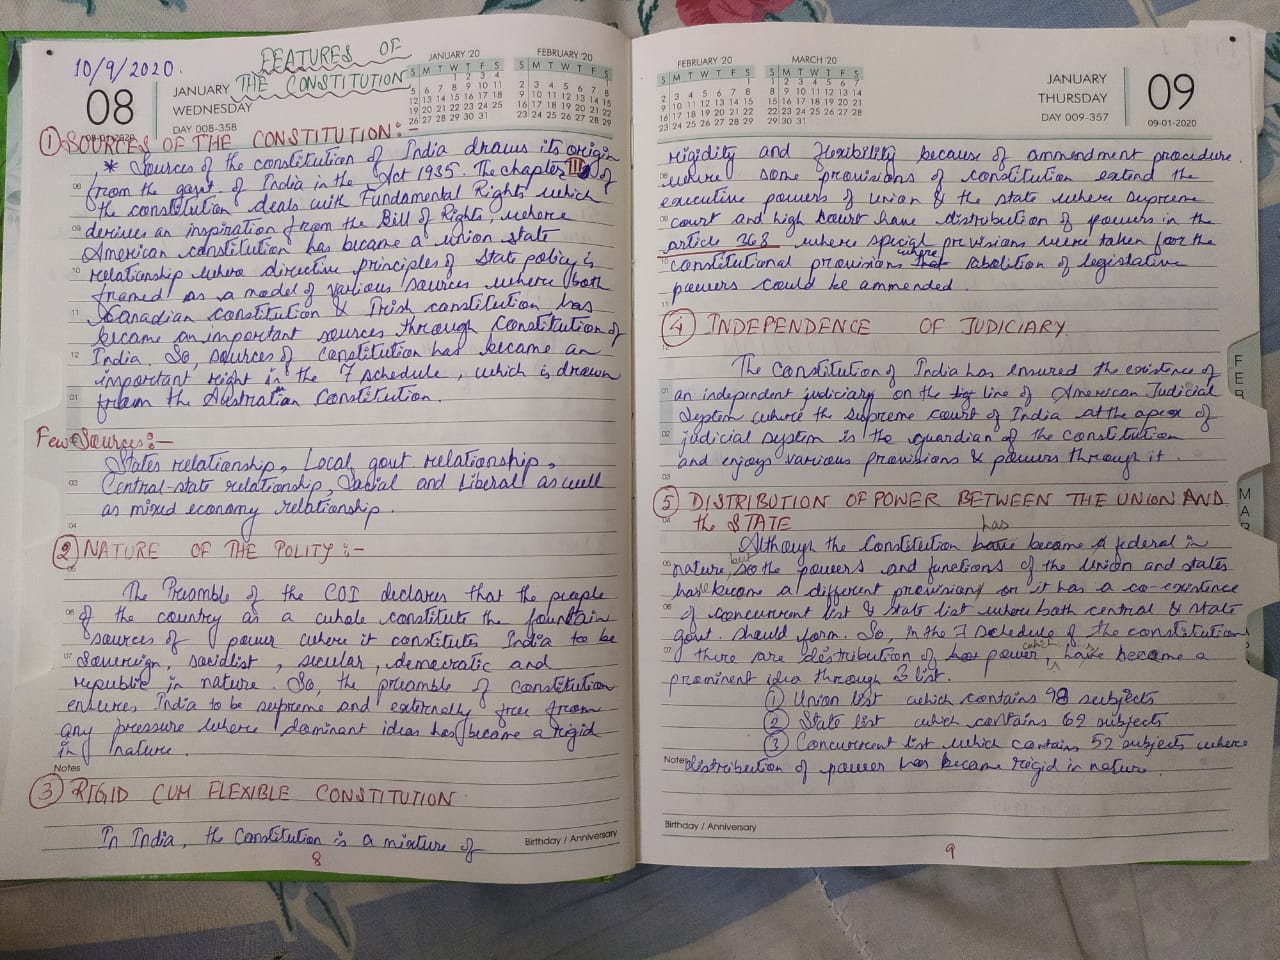 10/9/2020.
FEATURES OF
THE CONSTITUTION
08
JANUARY
WEDNESDAY
DAY 008-358
08-01-2020
JANUARY '20
S M T W T F S
1 2 3 4
5 6 7 8 9 10 11
12 13 14 15 16 17 18
19 20 21 22 23 24 25
26 27 28 29 30 31
FEBRUARY '20
S M T W T F S
1
2 3 4 5 6 7 8
9 10 11 12 13 14 15
16 17 18 19 20 21 22
23 24 25 26 27 28 29
① SOURCES OF THE CONSTITUTION:-
* Sources of the constitution of India draws its origin
from the govt of India in the Act 1935. The chapter III of
the constitution deals with Fundamental Rights which
derives an inspiration from the Bill of Rights, where
American constitution has became a union state
relationship where directive principles of State policy is
framed as a model of various sources where both
Canadian constitution & Irish constitution has
became an important sources through Constitution of
India. So, sources of constitution has became an
important right in the 7 schedule, which is drawn
from the Australian Constitution.
Few Sources:-
States relationship, Local govt. relationship,
Central-state relationship, Social and Liberal as well
as mixed economy relationship.
② NATURE OF THE POLITY :-
The Preamble of the COI declares that the people
of the country as a whole constitute the fountain
sources of power where it constitutes India to be
Sovereign, socialist, secular, democratic and
republic in nature. So, the preamble of constitution
ensures India to be supreme and externally free from
any pressure where dominant ideas has became a rigid
in nature.
Notes
③ RIGID CUM FLEXIBLE CONSTITUTION
In India, the Constitution is a mixture of
Birthday / Anniversary
8
FEBRUARY '20
S M T W T F S
1
2 3 4 5 6 7 8
9 10 11 12 13 14 15
16 17 18 19 20 21 22
23 24 25 26 27 28 29
MARCH '20
S M T W T F S
1 2 3 4 5 6 7
8 9 10 11 12 13 14
15 16 17 18 19 20 21
22 23 24 25 26 27 28
29 30 31
JANUARY
THURSDAY
DAY 009-357
09
09-01-2020
rigidity and flexibility because of ammendment procedure.
where some provisions of constitution extend the
executive powers of union & the state where supreme
court and high court have distribution of powers in the
article 368 where special provisions were taken for the
constitutional provisions where abolition of legislative
powers could be ammended.
④ INDEPENDENCE OF JUDICIARY
The Constitution of India has ensured the existence of
an independent judiciary on the line of American Judicial
System where the supreme court of India at the apex of
judicial system is the guardian of the constitution
and enjoys various provisions & powers through it.
⑤ DISTRIBUTION OF POWER BETWEEN THE UNION AND
the STATE
Although the Constitution has became a federal in
nature, but the powers and functions of the Union and states
has became a different provisions or it has a co-existence
of concurrent list & state list where both central & state
govt. should form. So, in the 7 Schedule of the constitution
there are distribution of power, which have became a
prominent idea through 3 list.
① Union list which contains 98 subjects
② State list which contains 62 subjects
③ Concurrent list which contains 52 subjects where
Notes distribution of power has became rigid in nature.
Birthday / Anniversary
9
FEB
MAR